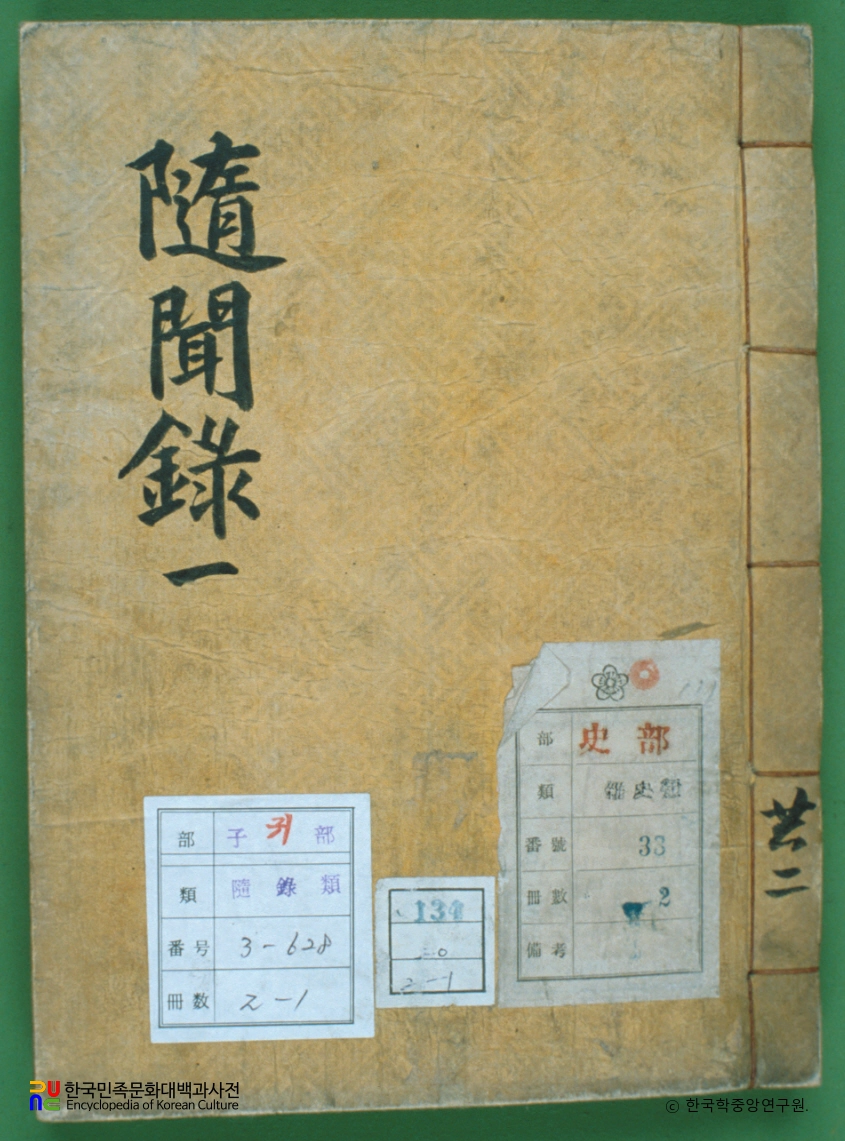 隨聞錄 一
共二
部 史部
類 雜史類
番號 33
冊數 2
備考
134
2-1
部 子 귀 部
類 隨錄類
番号 3-628
冊数 2-1
한국민족문화대백과사전
Encyclopedia of Korean Culture
© 한국학중앙연구원.